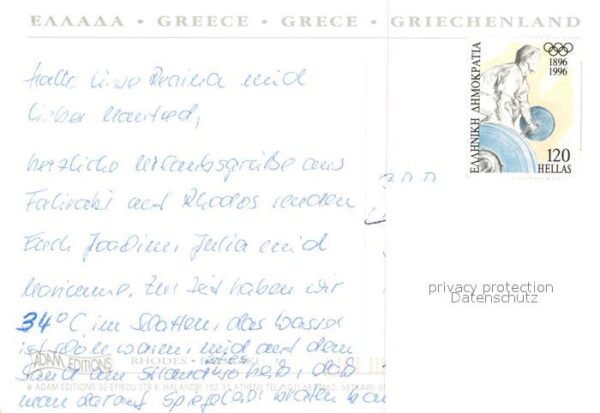 ΕΛΛΑΔΑ • GREECE • GRECE • GRIECHENLAND
1896
1996
ΕΛΛΗΝΙΚΗ ΔΗΜΟΚΡΑΤΙΑ
120
HELLAS
Hallo, liebe Regina und
lieber Manfred,
herzliche Urlaubsgrüße aus
Faliraki auf Rhodos senden
Euch Joachim, Julia und
Marianne. Zur Zeit haben wir
34°C im Schatten, das Wasser
ist schön warm, und auf dem
Sand am Strand so heiß, daß
man darauf Spiegelei braten kann
privacy protection
Datenschutz
ADAM EDITIONS
RHODES •
© ADAM EDITIONS 32 EPIROU STR. HALANDRI 152 31 ATHENS